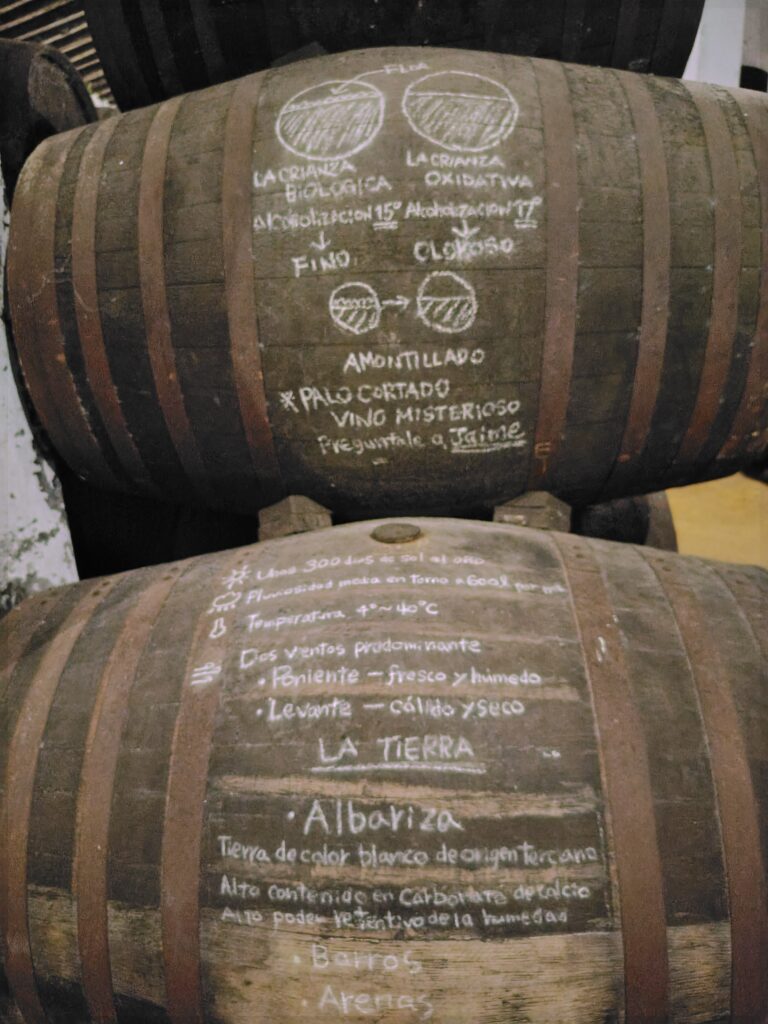 FLOR
LA CRIANZA BIOLOGICA
Alcoholización 15°
↓
FINO
LA CRIANZA OXIDATIVA
Alcoholización 17°
↓
OLOROSO
→
AMONTILLADO
* PALO CORTADO
VINO MISTERIOSO
Preguntale a Jaime
Unos 300 dias de sol al año
Pluviosidad media en torno a 600 l por
Temperatura 4°~40°C
Dos vientos predominante
• Poniente — fresco y húmedo
• Levante — cálido y seco
LA TIERRA
• Albariza
Tierra de color blanco de origen Terciario
Alto contenido en Carbonato de calcio
Alto poder retentivo de la humedad
• Barros
• Arenas